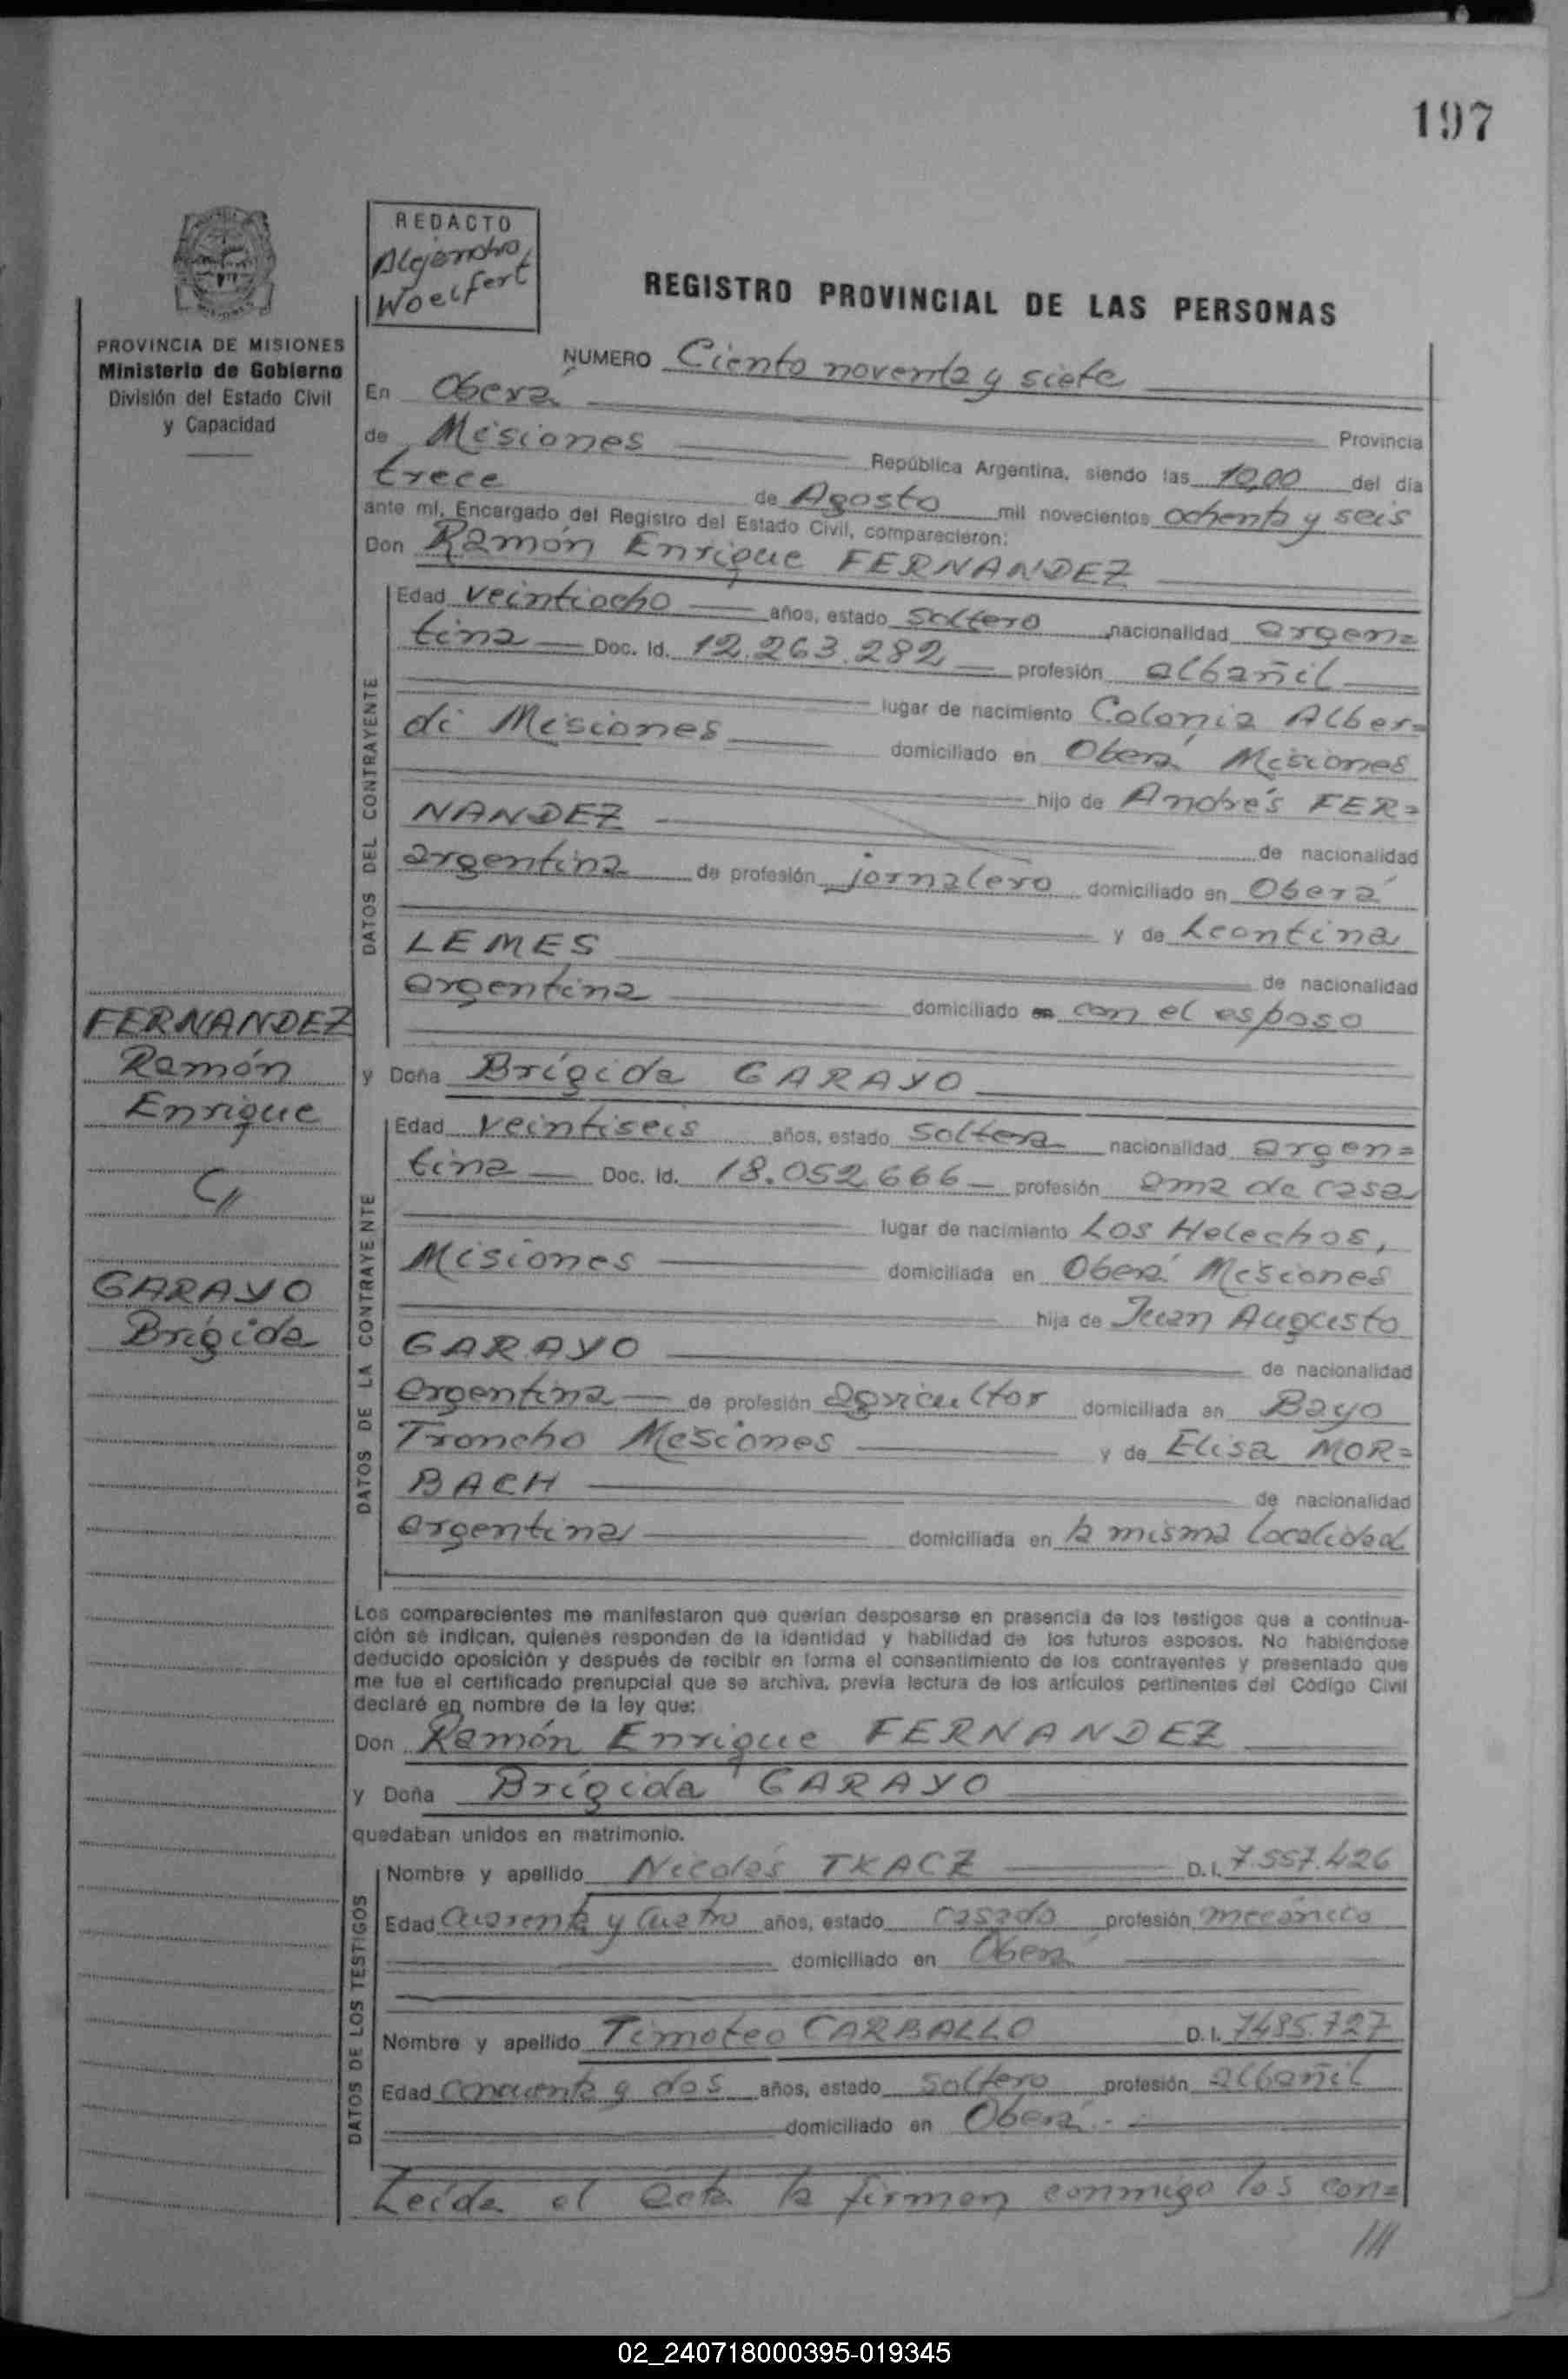 197
REDACTO
Alejandro
Woelfert
REGISTRO PROVINCIAL DE LAS PERSONAS
PROVINCIA DE MISIONES
Ministerio de Gobierno
División del Estado Civil
y Capacidad
NUMERO Ciento noventa y siete
En Oberá
Provincia
de Misiones República Argentina, siendo las 10,00 del día
trece de Agosto mil novecientos ochenta y seis
ante mí, Encargado del Registro del Estado Civil, comparecieron:
Don Ramón Enrique FERNANDEZ
DATOS DEL CONTRAYENTE
Edad veintiocho años, estado soltero nacionalidad argen=
tina Doc. Id. 12.263.282 profesión albañil
lugar de nacimiento Colonia Alber=
di Misiones domiciliado en Oberá Misiones
hijo de Andrés FER=
NANDEZ de nacionalidad
argentina de profesión jornalero domiciliado en Oberá
y de Leontina
LEMES de nacionalidad
argentina domiciliado en con el esposo
FERNANDEZ
Ramón
Enrique
C//
GARAYO
Brígida
y Doña Brígida GARAYO
DATOS DE LA CONTRAYENTE
Edad veintiseis años, estado soltera nacionalidad argen=
tina Doc. Id. 18.052.666 profesión ama de casa
lugar de nacimiento Los Helechos,
Misiones domiciliada en Oberá Misiones
hija de Juan Augusto
GARAYO de nacionalidad
argentina de profesión agricultor domiciliada en Bayo
Troncho Misiones y de Elisa MOR=
BACH de nacionalidad
argentina domiciliada en la misma localidad
Los comparecientes me manifestaron que querían desposarse en presencia de los testigos que a continua-
ción se indican, quienes responden de la identidad y habilidad de los futuros esposos. No habiéndose
deducido oposición y después de recibir en forma el consentimiento de los contrayentes y presentado que
me fue el certificado prenupcial que se archiva, previa lectura de los artículos pertinentes del Código Civil
declaré en nombre de la ley que:
Don Ramón Enrique FERNANDEZ
y Doña Brígida GARAYO
quedaban unidos en matrimonio.
DATOS DE LOS TESTIGOS
Nombre y apellido Nicolás TKACZ D.I. 7.557.426
Edad cuarenta y cuatro años, estado casado profesión mecánico
domiciliado en Oberá
Nombre y apellido Timoteo CARBALLO D.I. 7485.727
Edad cincuenta y dos años, estado soltero profesión albañil
domiciliado en Oberá.
Leída el acta la firman conmigo los con=
///
02_240718000395-019345